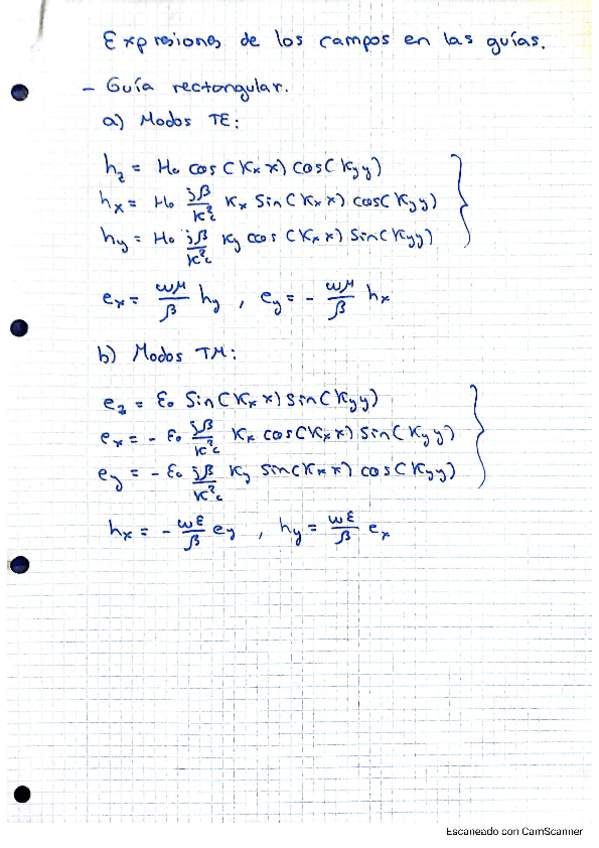 Expresiones de los campos en las guías.
- Guía rectangular.
a) Modos TE:
h_z = H₀ cos(Kₓ x) cos(K_y y)
hₓ = H₀ jβ/K²c Kₓ Sin(Kₓ x) cos(K_y y)
h_y = H₀ jβ/K²c K_y cos(Kₓ x) Sin(K_y y)
eₓ = ωμ/β h_y , e_y = - ωμ/β hₓ
b) Modos TM:
e_z = E₀ Sin(Kₓ x) Sin(K_y y)
eₓ = - E₀ jβ/K²c Kₓ cos(Kₓ x) Sin(K_y y)
e_y = - E₀ jβ/K²c K_y Sin(Kₓ x) cos(K_y y)
hₓ = - ωε/β e_y , h_y = ωε/β eₓ
Escaneado con CamScanner